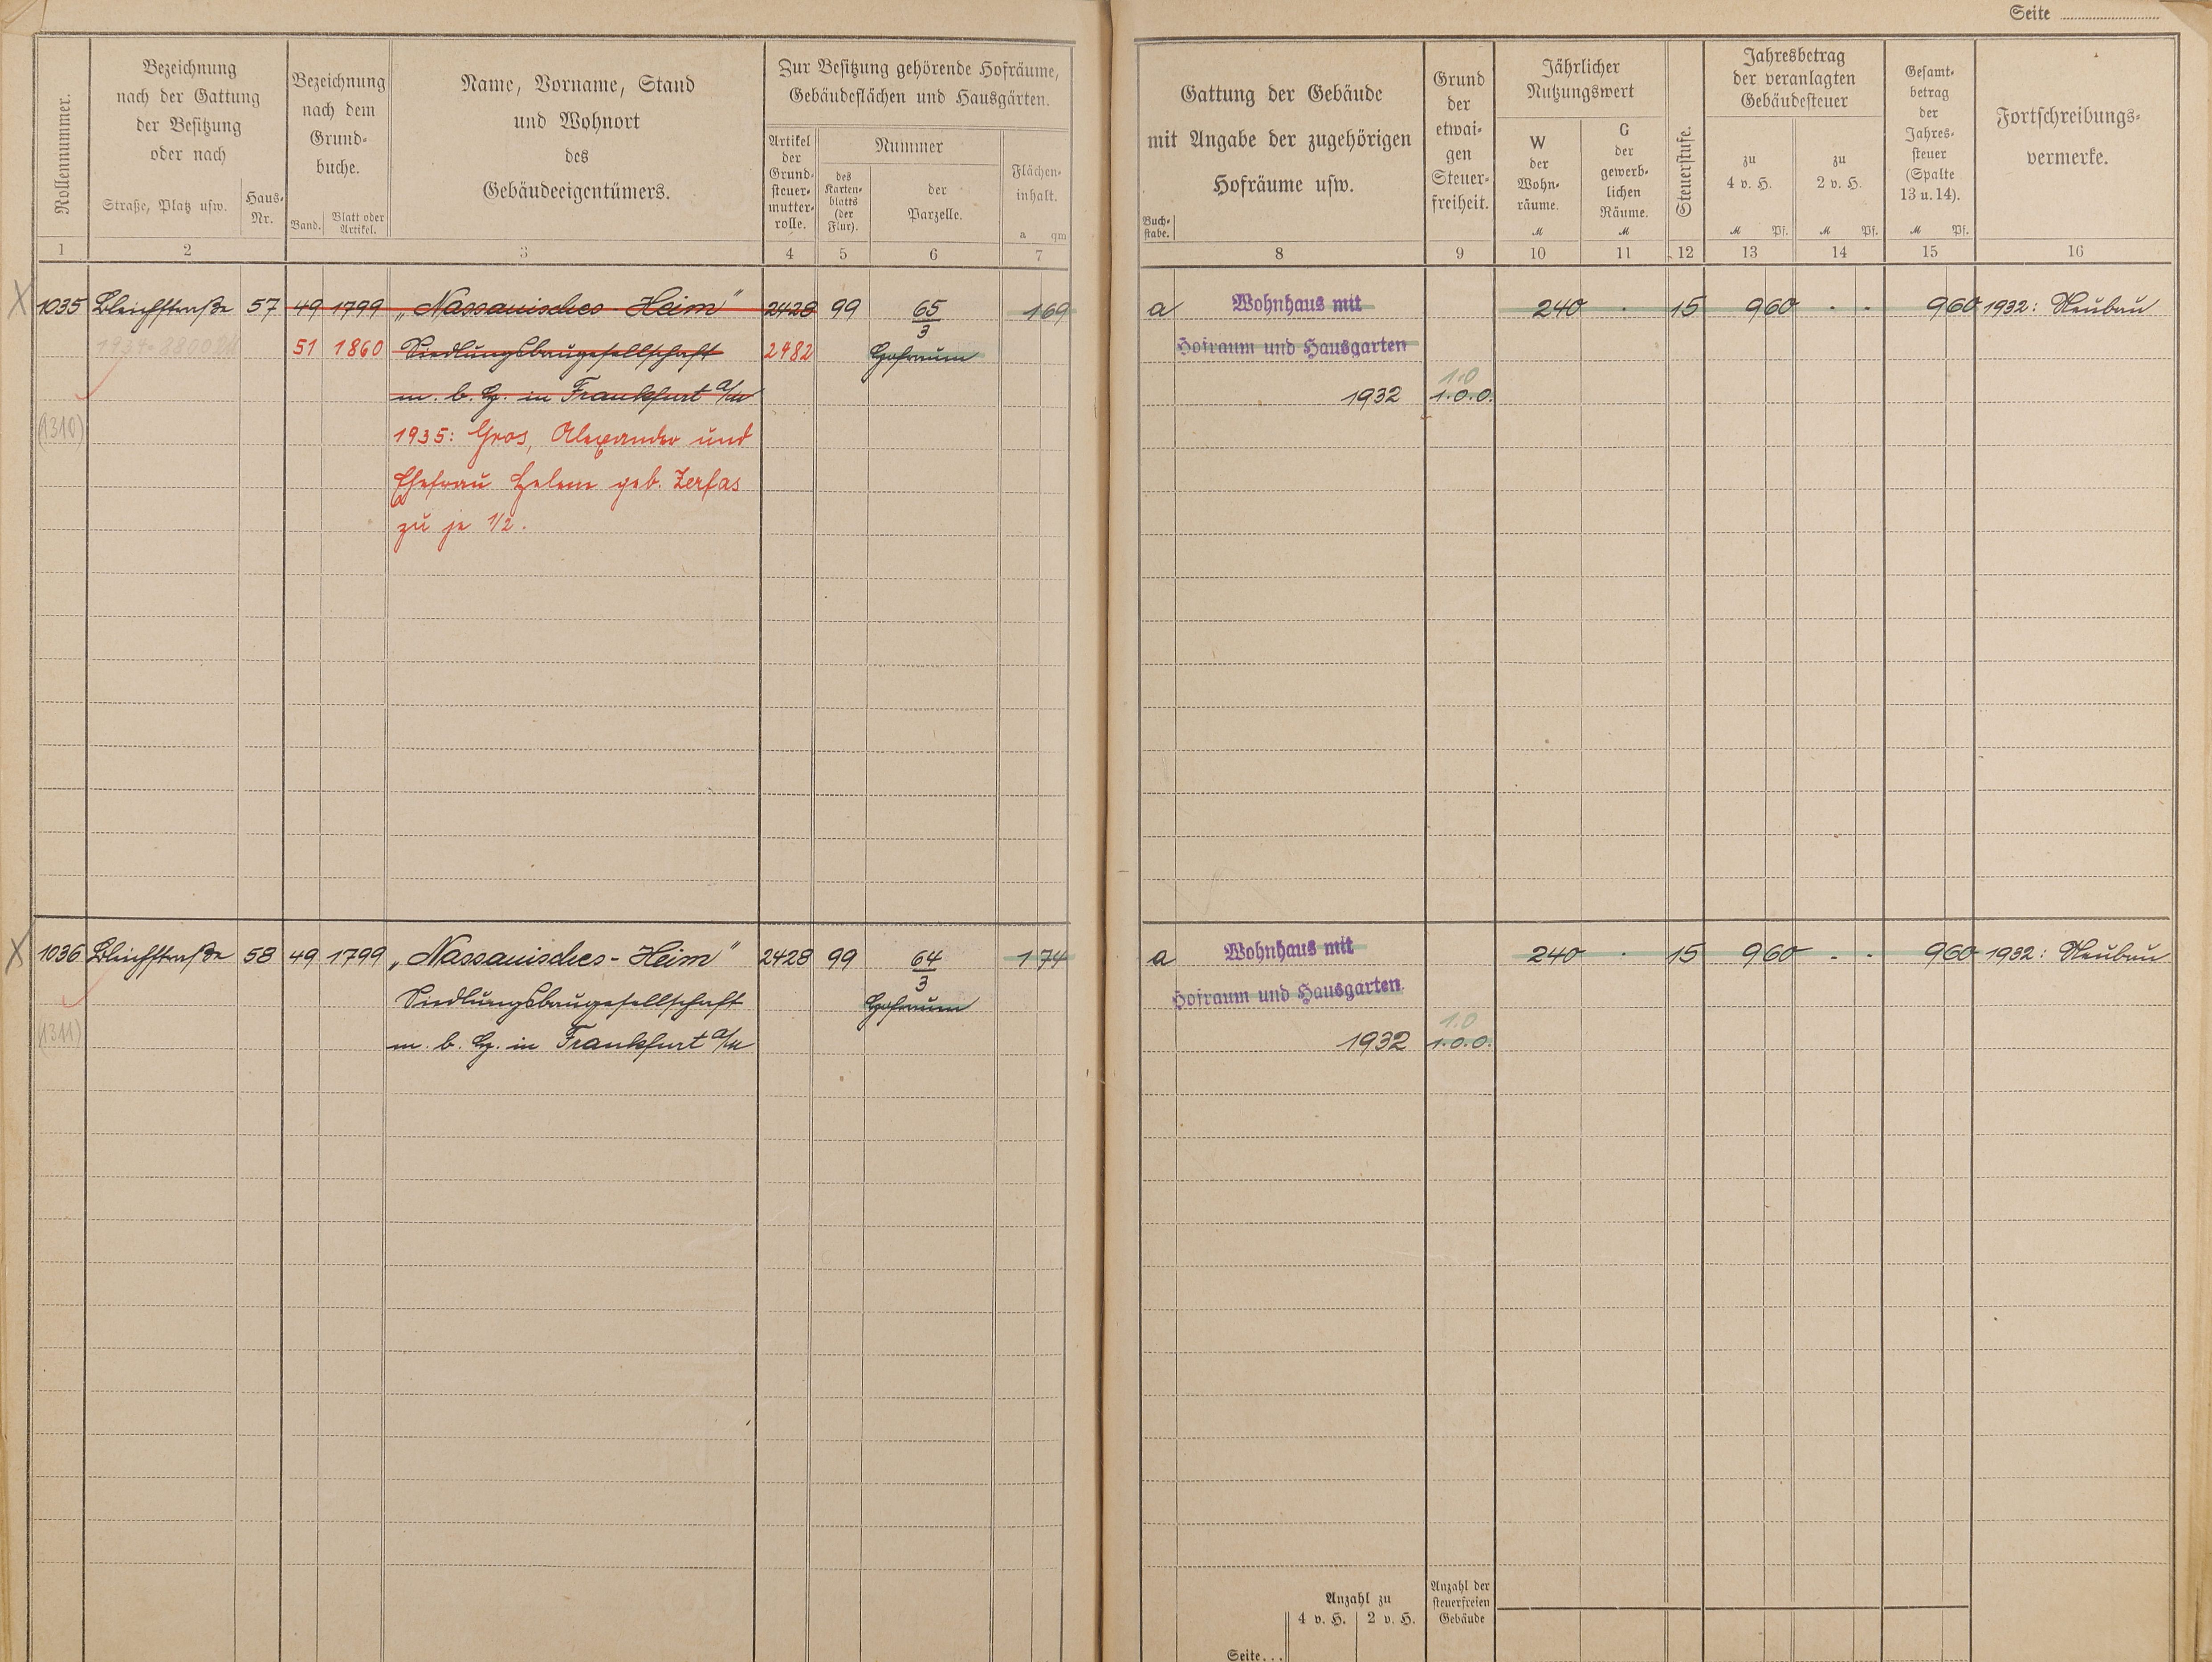 Seite
Rollennummer.
Bezeichnung
nach der Gattung
der Besitzung
oder nach
Straße, Platz usw.
Haus-
Nr.
Bezeichnung
nach dem
Grund-
buche.
Band.
Blatt oder
Artikel.
Name, Vorname, Stand
und Wohnort
des
Gebäudeeigentümers.
Zur Besitzung gehörende Hofräume,
Gebäudeflächen und Hausgärten.
Artikel
der
Grund-
steuer-
mutter-
rolle.
Nummer
des
Karten-
blatts
(der
Flur).
der
Parzelle.
Flächen-
inhalt.
a qm
1 2 3 4 5 6 7
Gattung der Gebäude
mit Angabe der zugehörigen
Hofräume usw.
Buch-
stabe.
Grund
der
etwai-
gen
Steuer-
freiheit.
Jährlicher
Nutzungswert
W
der
Wohn-
räume.
M
G
der
gewerb-
lichen
Räume.
M
Steuerstufe.
Jahresbetrag
der veranlagten
Gebäudesteuer
zu
4 v. H.
M Pf.
zu
2 v. H.
M Pf.
Gesamt-
betrag
der
Jahres-
steuer
(Spalte
13 u. 14).
M Pf.
Fortschreibungs-
vermerke.
8 9 10 11 12 13 14 15 16
1035 Bleichstraße 57 49 1799 „Nassauisches-Heim" 2428 99 65/3 169 a Wohnhaus mit 240 · 15 960 - - 960 1932: Neubau
51 1860 Siedlungsbaugesellschaft 2482 Hofraum Hofraum und Hausgarten
m. b. H. in Frankfurt a/M 1932 1.0.0.
1.0
(1310)
1935: Gros, Alexander und
Ehefrau Helene geb. Zerfas
zu je 1/2.
1036 Bleichstraße 58 49 1799 „Nassauisches-Heim" 2428 99 64/3 174 a Wohnhaus mit 240 · 15 960 - - 960 1932: Neubau
Siedlungsbaugesellschaft Hofraum Hofraum und Hausgarten.
(1311) m. b. H. in Frankfurt a/M 1932 1.0.0.
1.0
Anzahl zu
4 v. H. 2 v. H.
Anzahl der
steuerfreien
Gebäude
Seite...